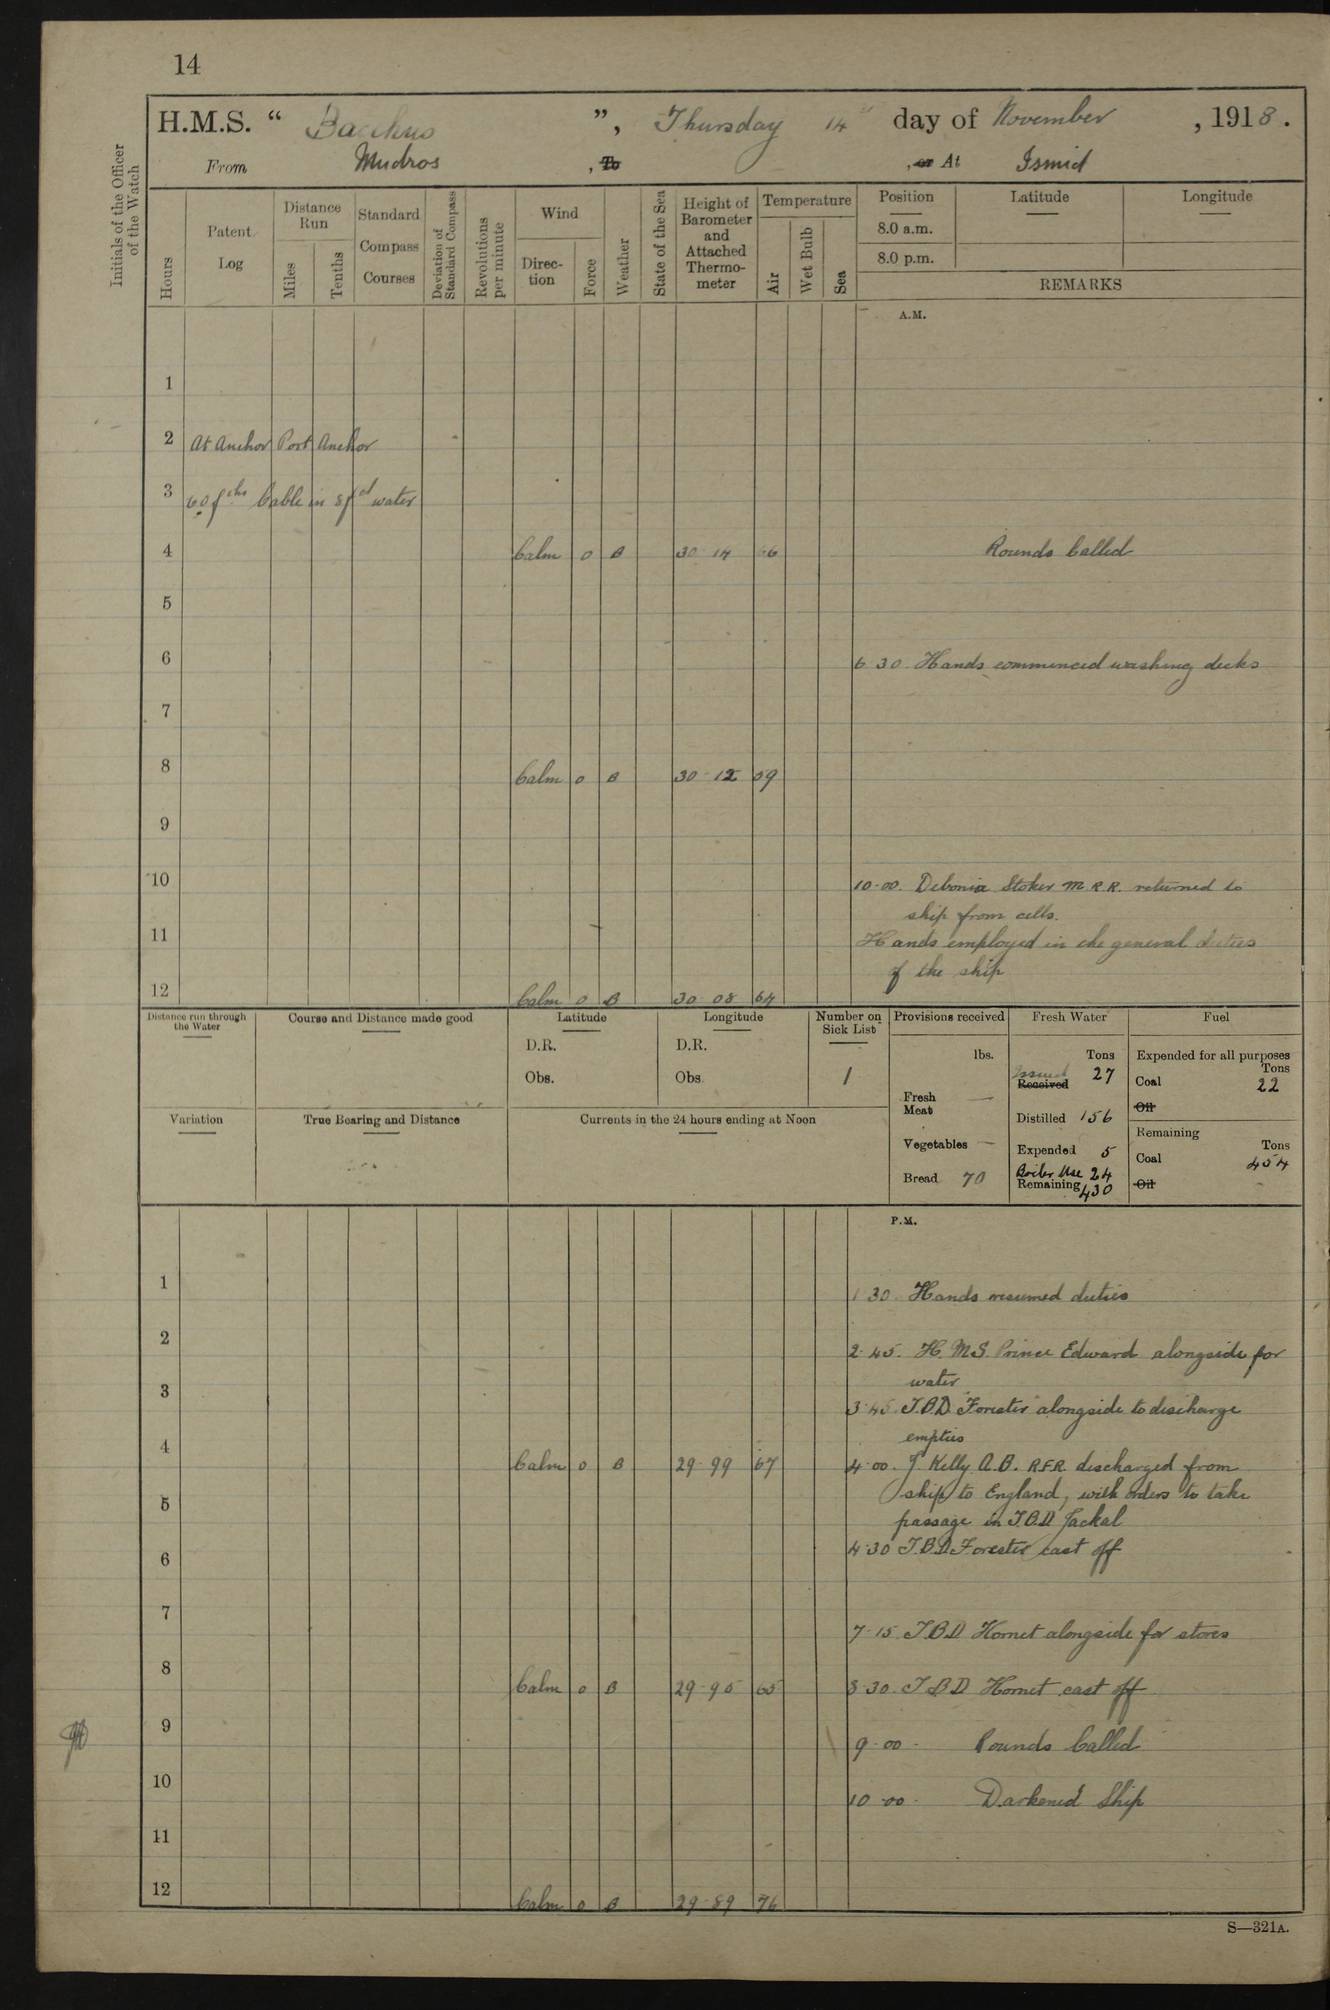 14
H.M.S. “ Bacchus ”, Thursday 14th day of November, 1918.
From Mudros, To , or At Ismid
Initials of the Officer of the Watch
Hours
Patent Log
Distance Run
Miles
Tenths
Standard Compass Courses
Deviation of Standard Compass
Revolutions per minute
Wind
Direc-tion
Force
Weather
State of the Sea
Height of Barometer and Attached Thermo-meter
Temperature
Air
Wet Bulb
Sea
Position
8.0 a.m.
8.0 p.m.
Latitude
Longitude
REMARKS
A.M.
1
2 At Anchor Port Anchor
3 60 fths Cable in 8 fd water
4 Calm 0 B 30 14 66 Rounds Called
5
6 6.30. Hands commenced washing decks
7
8 Calm 0 B 30 12 59
9
10 10.00. Debonia Stoker M.R.R. returned to
ship from cells.
11 Hands employed in the general duties
of the ship
12 Calm 0 B 30 08 64
Distance run through the Water
Course and Distance made good
Latitude
D.R.
Obs.
Longitude
D.R.
Obs.
Number on Sick List
1
Provisions received
lbs.
Fresh Meat —
Vegetables —
Bread 70
Fresh Water
Tons
Issued Received 27
Distilled 156
Expended 5
Boiler Use 24
Remaining 430
Fuel
Expended for all purposes
Tons
Coal 22
Oil
Remaining
Tons
Coal 454
Oil
Variation
True Bearing and Distance
Currents in the 24 hours ending at Noon
P.M.
1 1.30. Hands resumed duties
2 2.45. H.M.S. Prince Edward alongside for
water
3 3.45. T.B.D. Forester alongside to discharge
empties
4 Calm 0 B 29.99 67 4.00. J. Kelly A.B. R.F.R. discharged from
ship to England, with orders to take
5 passage in T.B.D. Jackal
4.30 T.B.D. Forester cast off
6
7 7.15. T.B.D Hornet alongside for stores
8 Calm 0 B 29.95 65 8.30. T.B.D Hornet cast off
9 9.00. Rounds Called
10 10.00. Darkened Ship
11
12 Calm 0 B 29.89 76
S—321A.